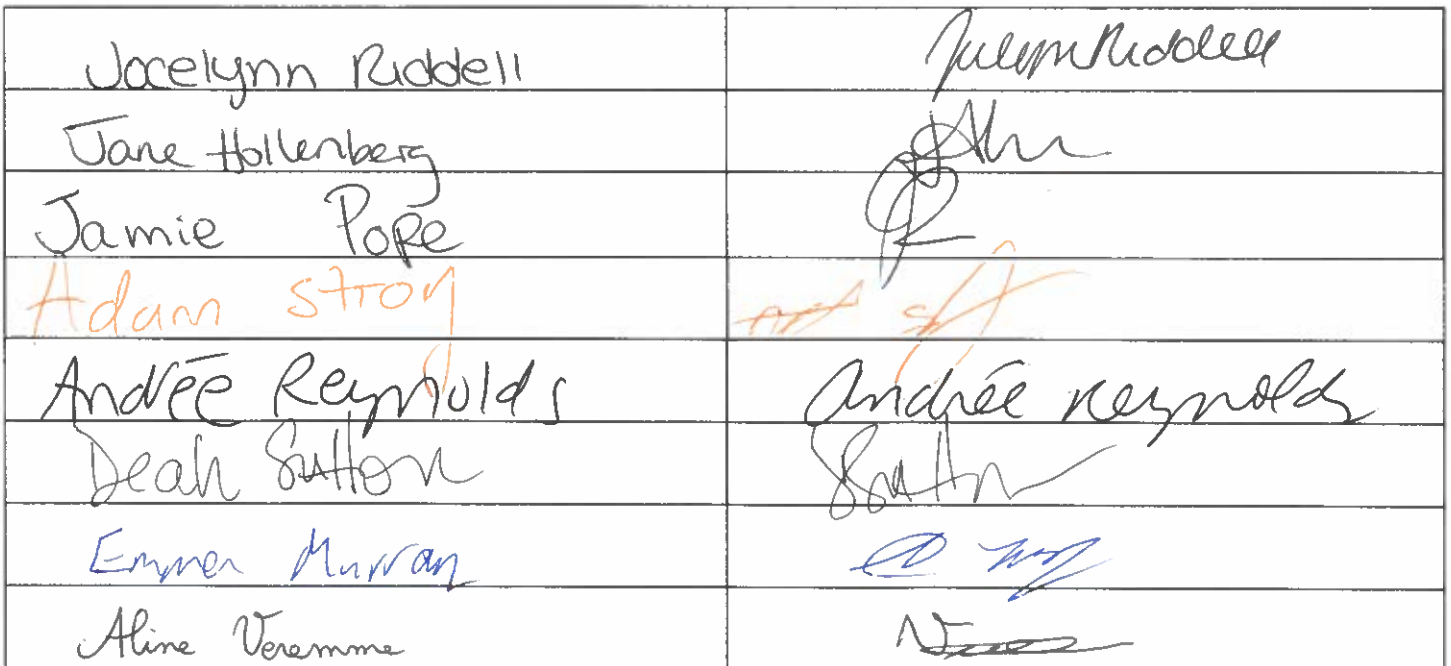 Jocelynn Riddell Jocelyn Riddell
Jane Hollenberg
Jamie Pope
Adam
Andrée Reynolds Andrée Reynolds
Sutton Sutton
Emma Murray
Aline Veremme